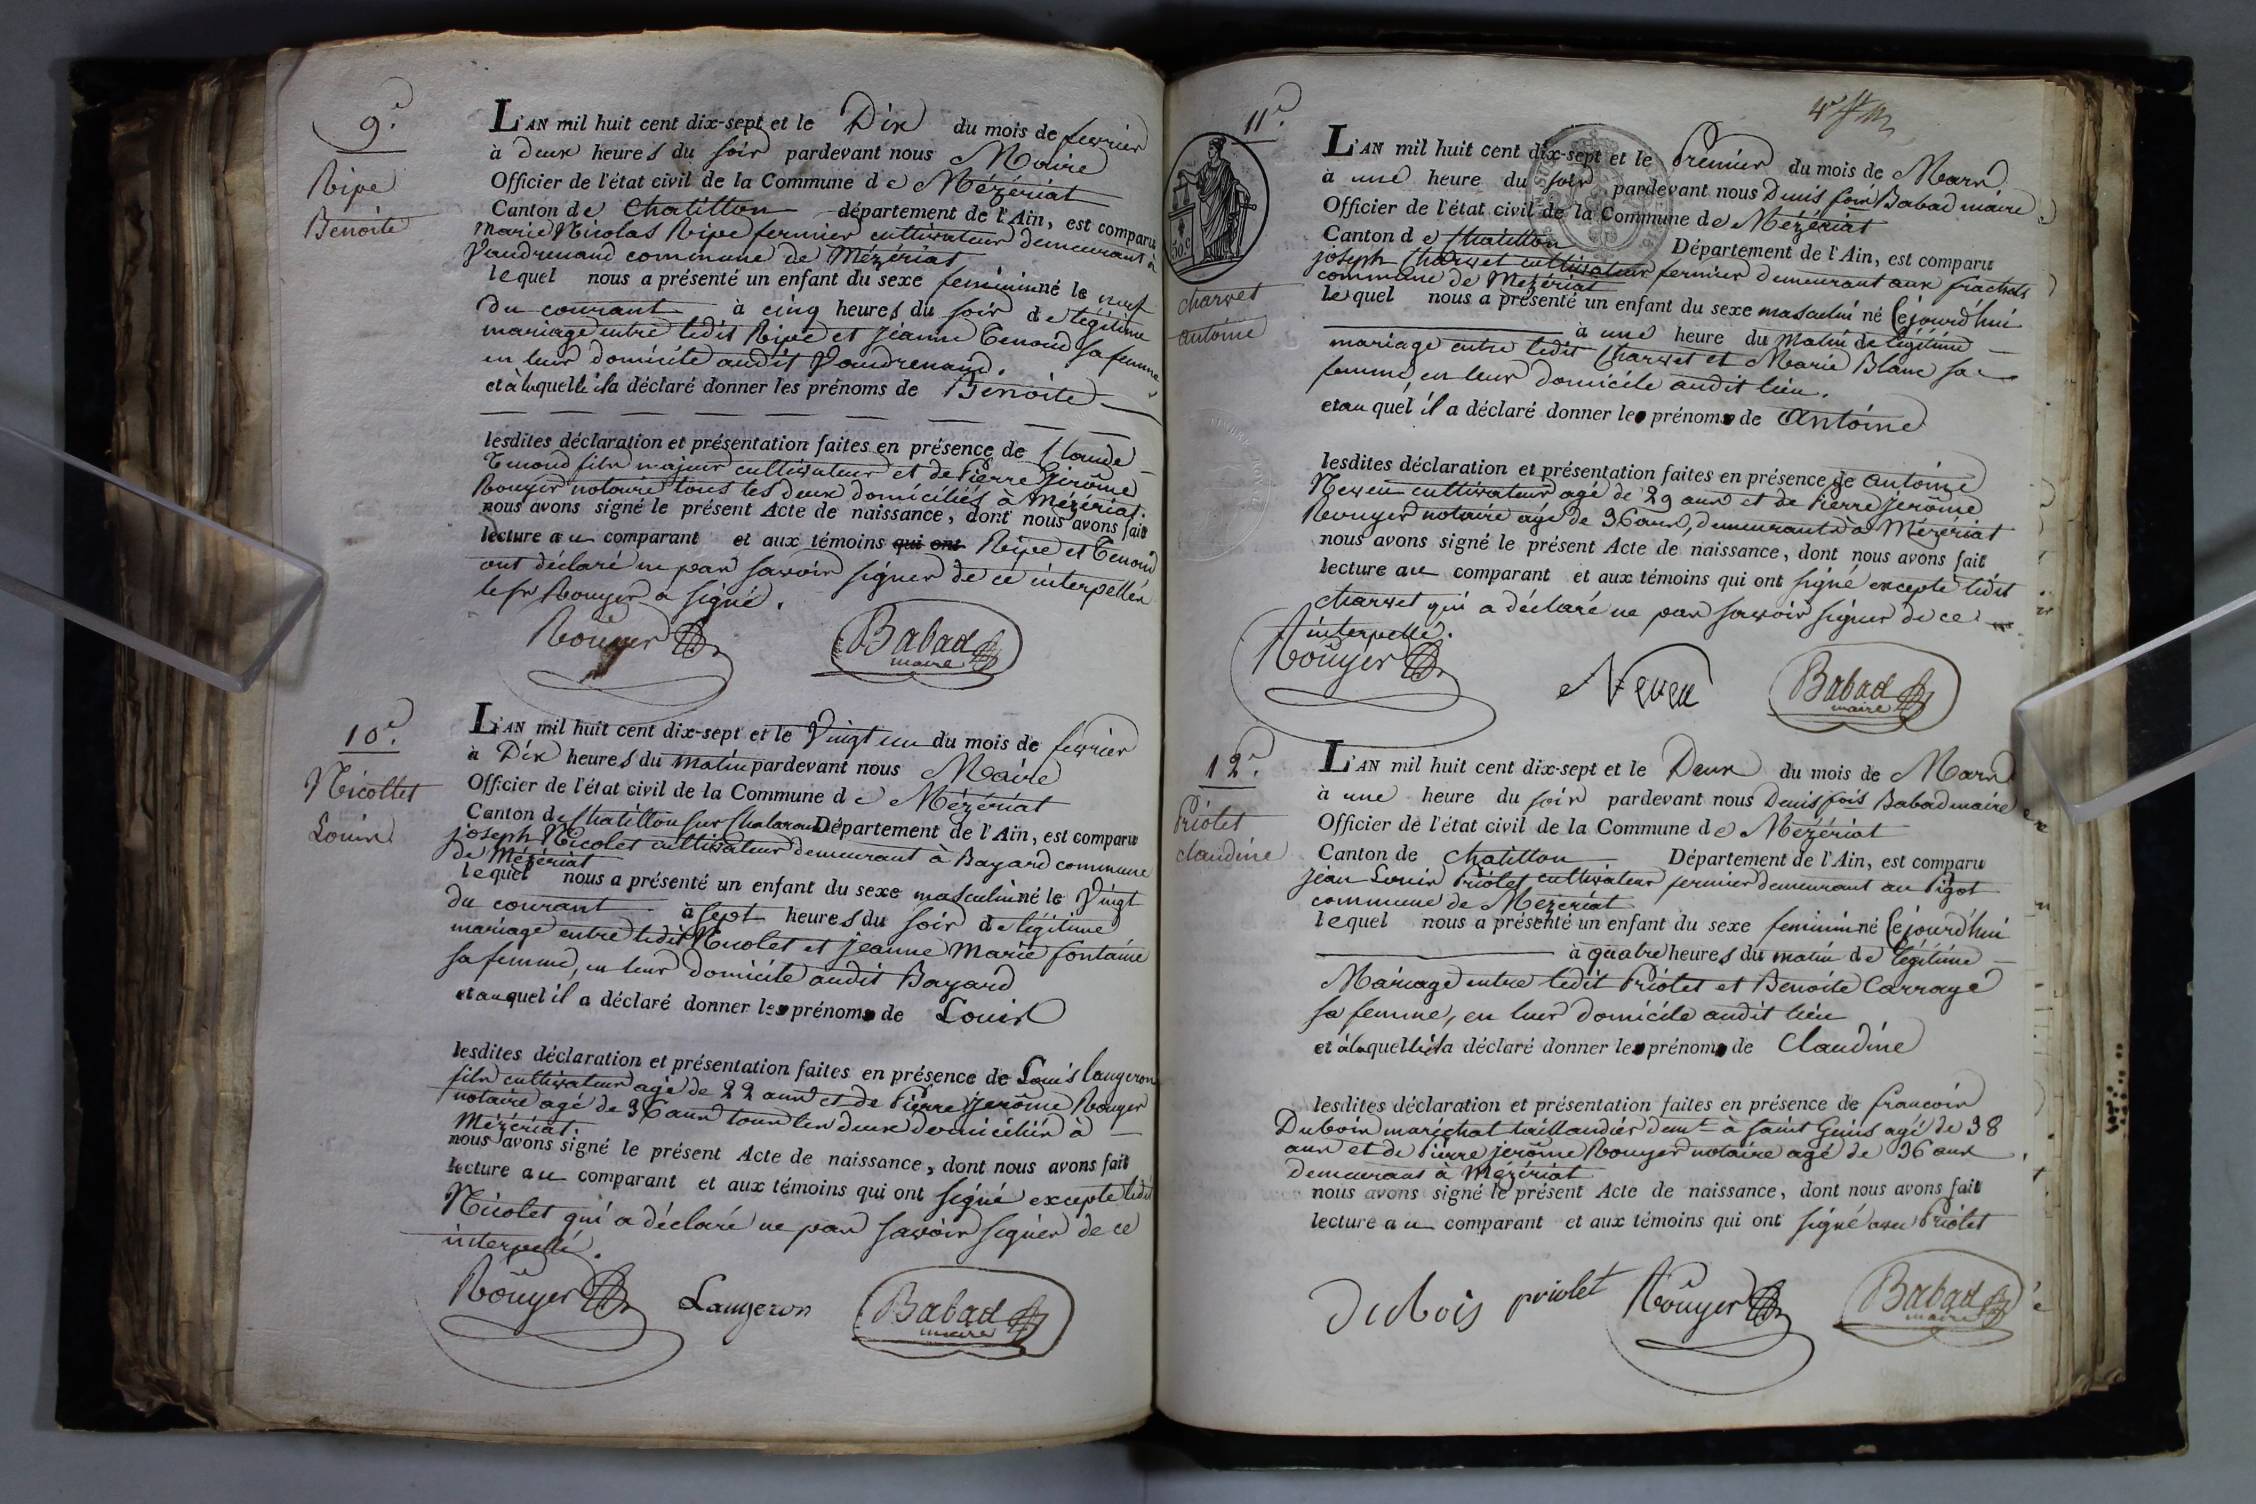 9e.
Ripe
Benoite
L'AN mil huit cent dix-sept et le Dix du mois de fevrier
à deux heures du soir pardevant nous Maire
Officier de l'état civil de la Commune de Mézériat
Canton de Chatillon département de l'Ain, est comparu
Marie Nicolas Ripe fermier cultivateur demeurant à
Vaudrenand commune de Mézériat
lequel nous a présenté un enfant du sexe feminin né le neuf
du courant à cinq heures du soir de légitime
mariage entre ledit Ripe et Jeanne Tenoud sa femme
en leur domicile audit Vaudrenand.
et à laquelle il a déclaré donner les prénoms de Benoite
lesdites déclaration et présentation faites en présence de Claude
Tenoud fils majeur cultivateur et de Pierre Girôme
Rouyer notaire tous les deux domiciliés à Mézériat.
nous avons signé le présent Acte de naissance, dont nous avons fait
lecture au comparant et aux témoins qui ont Ripe et Tenoud
ont déclaré ne pas savoir signer de ce interpellés
le sr Rouyer a signé.
Rouyer Babad
maire
10e.
Nicollet
Louis
L'AN mil huit cent dix-sept et le Vingt un du mois de fevrier
à Dix heures du matin pardevant nous Maire
Officier de l'état civil de la Commune de Mézériat
Canton de Chatillon sur Chalaronne Département de l'Ain, est comparu
joseph Nicolet cultivateur demeurant à Bayard commune
de Mézériat
lequel nous a présenté un enfant du sexe masculin né le Vingt
du courant à sept heures du soir de légitime
mariage entre ledit Nicolet et jeanne Marie fontaine
sa femme, en leur domicile audit Bayard
et auquel il a déclaré donner les prénoms de Louis
lesdites déclaration et présentation faites en présence de Louis laugeron
fils cultivateur agé de 22 ans et de Pierre jerôme Rouyer
notaire agé de 36 ans tous les deux domiciliés à
Mézériat.
nous avons signé le présent Acte de naissance, dont nous avons fait
lecture au comparant et aux témoins qui ont signé excepté ledit
Nicolet qui a déclaré ne pas savoir signer de ce
interpellé.
Rouyer Laugeron Babad
maire
11e.
50 c
charvet
antoine
L'AN mil huit cent dix-sept et le Premier du mois de Mars
à une heure du soir pardevant nous Denis fois Babad maire
Officier de l'état civil de la Commune de Mézériat
Canton de Chatillon Département de l'Ain, est comparu
joseph Charvet cultivateur fermier demeurant aux frachets
commune de Mézériat
lequel nous a présenté un enfant du sexe masculin né Cejourd'hui
à une heure du matin de légitime
mariage entre ledit Charvet et Marie Blanc sa
femme, en leur domicile audit lieu.
et au quel il a déclaré donner les prénoms de Antoine
lesdites déclaration et présentation faites en présence de antoine
Neveu cultivateur agé de 29 ans et de Pierre jerôme
Rouyer notaire agé de 36 ans, demeurants à Mézériat
nous avons signé le présent Acte de naissance, dont nous avons fait
lecture au comparant et aux témoins qui ont signé excepté ledit
charvet qui a déclaré ne pas savoir signer de ce
interpellé.
Rouyer Neveu Babad
maire
12e.
Priolet
claudine
L'AN mil huit cent dix-sept et le Deux du mois de Mars
à une heure du soir pardevant nous Denis fois Babad maire
Officier de l'état civil de la Commune de Mézériat
Canton de Chatillon Département de l'Ain, est comparu
jean Louis Priolet cultivateur fermier demeurant au Pigot
commune de Mézériat
lequel nous a présenté un enfant du sexe feminin né Cejourd'hui
à quatre heures du matin de légitime
Mariage entre ledit Priolet et Benoite Carragé
sa femme, en leur domicile audit lieu
et à laquelle il a déclaré donner les prénoms de Claudine
lesdites déclaration et présentation faites en présence de francois
Dubois maréchal taillandier demt à saint Genis agé de 38
ans et de Pierre jerôme Rouyer notaire agé de 36 ans
Demeurans à Mézériat
nous avons signé le présent Acte de naissance, dont nous avons fait
lecture au comparant et aux témoins qui ont signé avec Priolet
Dubois priolet Rouyer Babad
maire